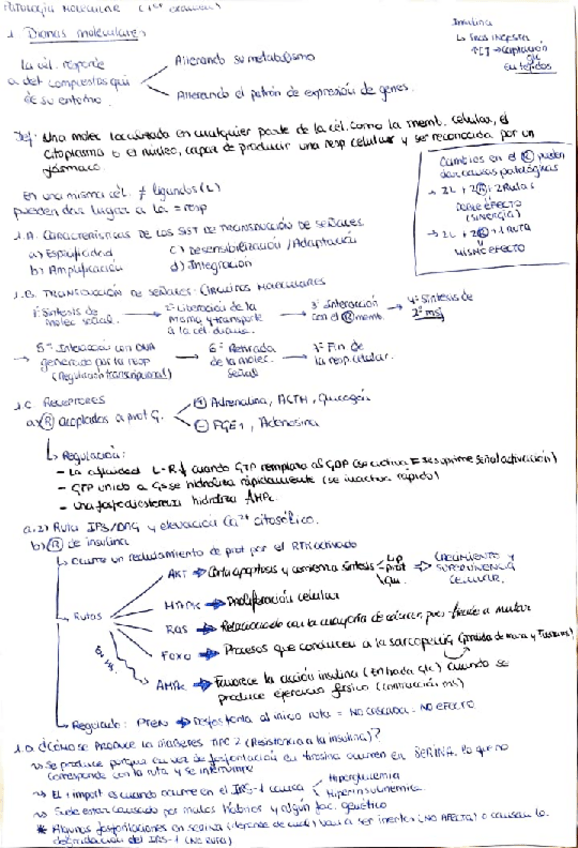 PATOLOGÍA MOLECULAR (1er examen)
Insulina
↳ Tras INGESTA
PET → captación
glc
en tejidos
1. Dianas moleculares
La cél. responde
a det compuestos quí
de su entorno
Alterando su metabolismo
Alterando el patrón de expresión de genes.
Def: Una molec localizada en cualquier parte de la cél. como la memb. celular, el
citoplasma o el núcleo, capaz de producir una resp celular y ser reconocida por un
fármaco.
Cambios en el Ⓡ pueden
dar causas patológicas
→ 2L + 2Ⓡ + 2 Rutas
DOBLE EFECTO
(SINERGIA)
→ 2L + 2Ⓡ + 1 RUTA
MISMO EFECTO
En una misma cél. ≠ ligandos (L)
pueden dar lugar a la = resp
1.A. CARACTERÍSTICAS DE LOS SIST DE TRANSDUCCIÓN DE SEÑALES.
a) Especificidad c) Desensibilización / Adaptación
b) Amplificación d) Integración
1.B. TRANSDUCCIÓN DE SEÑALES: CIRCUITOS MOLECULARES
1º Síntesis de
molec señal.
→ 2º Liberación de la
misma y transporte
a la cél diana.
→ 3º Interacción
con el Ⓡ memb.
→ 4º Síntesis de
2º msj
→ 5º Interacción con DNA
generado por la resp
(Regulación transcripcional)
→ 6º Retirada
de la molec.
señal
→ 7º Fin de
la resp. celular.
1.C. RECEPTORES
a) Ⓡ acoplados a prot G.
(+) Adrenalina, ACTH, Glucagón
(-) PGE1, Adenosina
↳ Regulación:
- La afinidad L-R ↓ cuando GTP remplaza al GDP (se activa = se suprime señal activación)
- GTP unido a Gs se hidroliza rápidamente (se inactiva rápido)
- Una fosfodiesterasa hidroliza AMPc.
a.2) Ruta IP3/DAG y elevación Ca²⁺ citosólico.
b) Ⓡ de insulina
↳ Ocurre un reclutamiento de prot por el RTK activado
Rutas
AKT → Corta apoptosis y comienza síntesis
Lip
prot
Glu.
→ CRECIMIENTO Y
SUPERVIVENCIA
CELULAR.
MAPK → Proliferación celular
RAS → Relacionado con la mayoría de cánceres, pues tiende a mutar
FOXO → Procesos que conducen a la sarcopenia (pérdida de masa y función).
AMPK → Favorece la acción insulina (entrada glc) cuando se
produce ejercicio físico (contracción msc)
↳ Regulado: PTEN → Desfosforila al inicio ruta = NO CASCADA. NO EFECTO
1.D. ¿Cómo se PRODUCE LA DIABETES TIPO 2 (Resistencia a la insulina)?
↝ Se produce porque en vez de fosforilación en tirosina ocurren en SERINA, lo que no
corresponde con la ruta y se interrumpe
↝ El + import es cuando ocurre en el IRS-1 causa
Hiperglucemia
Hiperinsulinemia.
↝ Suele estar causado por malos hábitos y algún fac. genético
* Algunas fosforilaciones en serina (depende de cuál) van a ser inertes (NO AFECTA) o causan la
degradación del IRS-1 (NO RUTA)